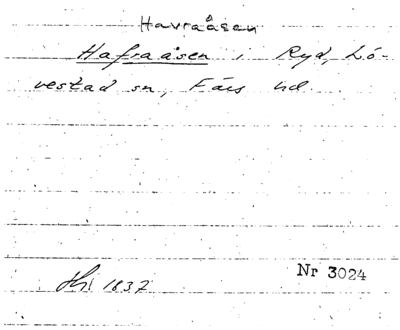 Havraåsen
Hafraåsen i Ryd, Lö-
vestad sn, Färs hd.
1837
Nr 3024